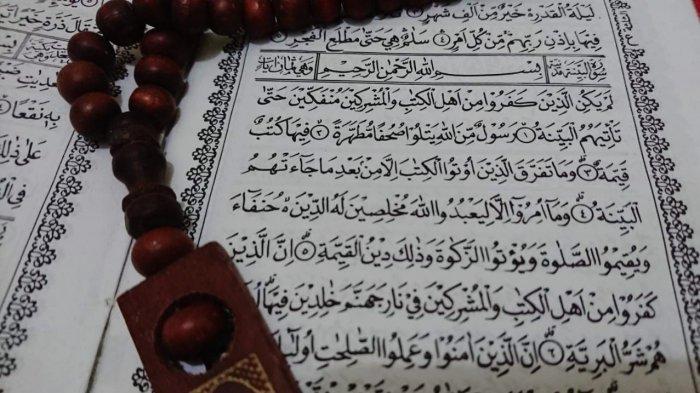 لَيْلَةُ الْقَدْرِ خَيْرٌ مِّنْ اَلْفِ شَهْرٍ
فِيْهَا بِاِذْنِ رَبِّهِمْ مِّنْ كُلِّ اَمْرٍ ٤ سَلٰمٌ هِيَ حَتّٰى مَطْلَعِ الْفَجْرِ
سُوْرَةُ الْبَيِّنَةِ مَدَنِيَّةٌ بِسْمِ اللهِ الرَّحْمٰنِ الرَّحِيْمِ وَهِيَ ثَمَانُ اٰيَاتٍ
لَمْ يَكُنِ الَّذِيْنَ كَفَرُوْا مِنْ اَهْلِ الْكِتٰبِ وَالْمُشْرِكِيْنَ مُنْفَكِّيْنَ حَتّٰى
تَأْتِيَهُمُ الْبَيِّنَةُ ١ رَسُوْلٌ مِّنَ اللهِ يَتْلُوْا صُحُفًا مُّطَهَّرَةً ٢ فِيْهَا كُتُبٌ
قَيِّمَةٌ ٣ وَمَا تَفَرَّقَ الَّذِيْنَ اُوْتُوا الْكِتٰبَ اِلَّا مِنْۢ بَعْدِ مَا جَآءَتْهُمُ
الْبَيِّنَةُ ٤ وَمَآ اُمِرُوْٓا اِلَّا لِيَعْبُدُوا اللهَ مُخْلِصِيْنَ لَهُ الدِّيْنَ حُنَفَآءَ
وَيُقِيْمُوا الصَّلٰوةَ وَيُؤْتُوا الزَّكٰوةَ وَذٰلِكَ دِيْنُ الْقَيِّمَةِ ٥ اِنَّ الَّذِيْنَ
كَفَرُوْا مِنْ اَهْلِ الْكِتٰبِ وَالْمُشْرِكِيْنَ فِيْ نَارِ جَهَنَّمَ خٰلِدِيْنَ فِيْهَا
هُمْ شَرُّ الْبَرِيَّةِ ٦ اِنَّ الَّذِيْنَ اٰمَنُوْا وَعَمِلُوا الصّٰلِحٰتِ